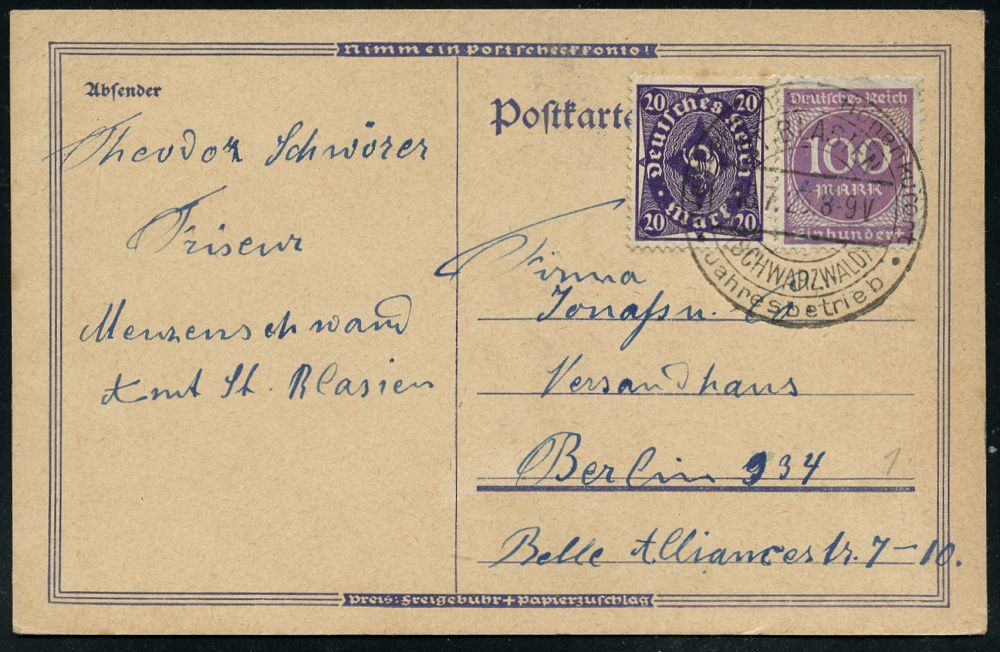 Nimm ein Postscheckkonto!
Absender
Theodor Schwörer
Friseur
Menzenschwand
Amt St. Blasien
Postkarte
20 20
Deutsches Reich
20 Mark 20
Deutsches Reich
100
MARK
Einhundert
ST. BLASIEN
7. 23. 8-9 V
(SCHWARZWALD)
Jahresbetrieb
Firma
Jonass u. Co.
Versandhaus
Berlin 934
1
Belle Alliancestr. 7-10.
Preis: Freigebühr + Papierzuschlag